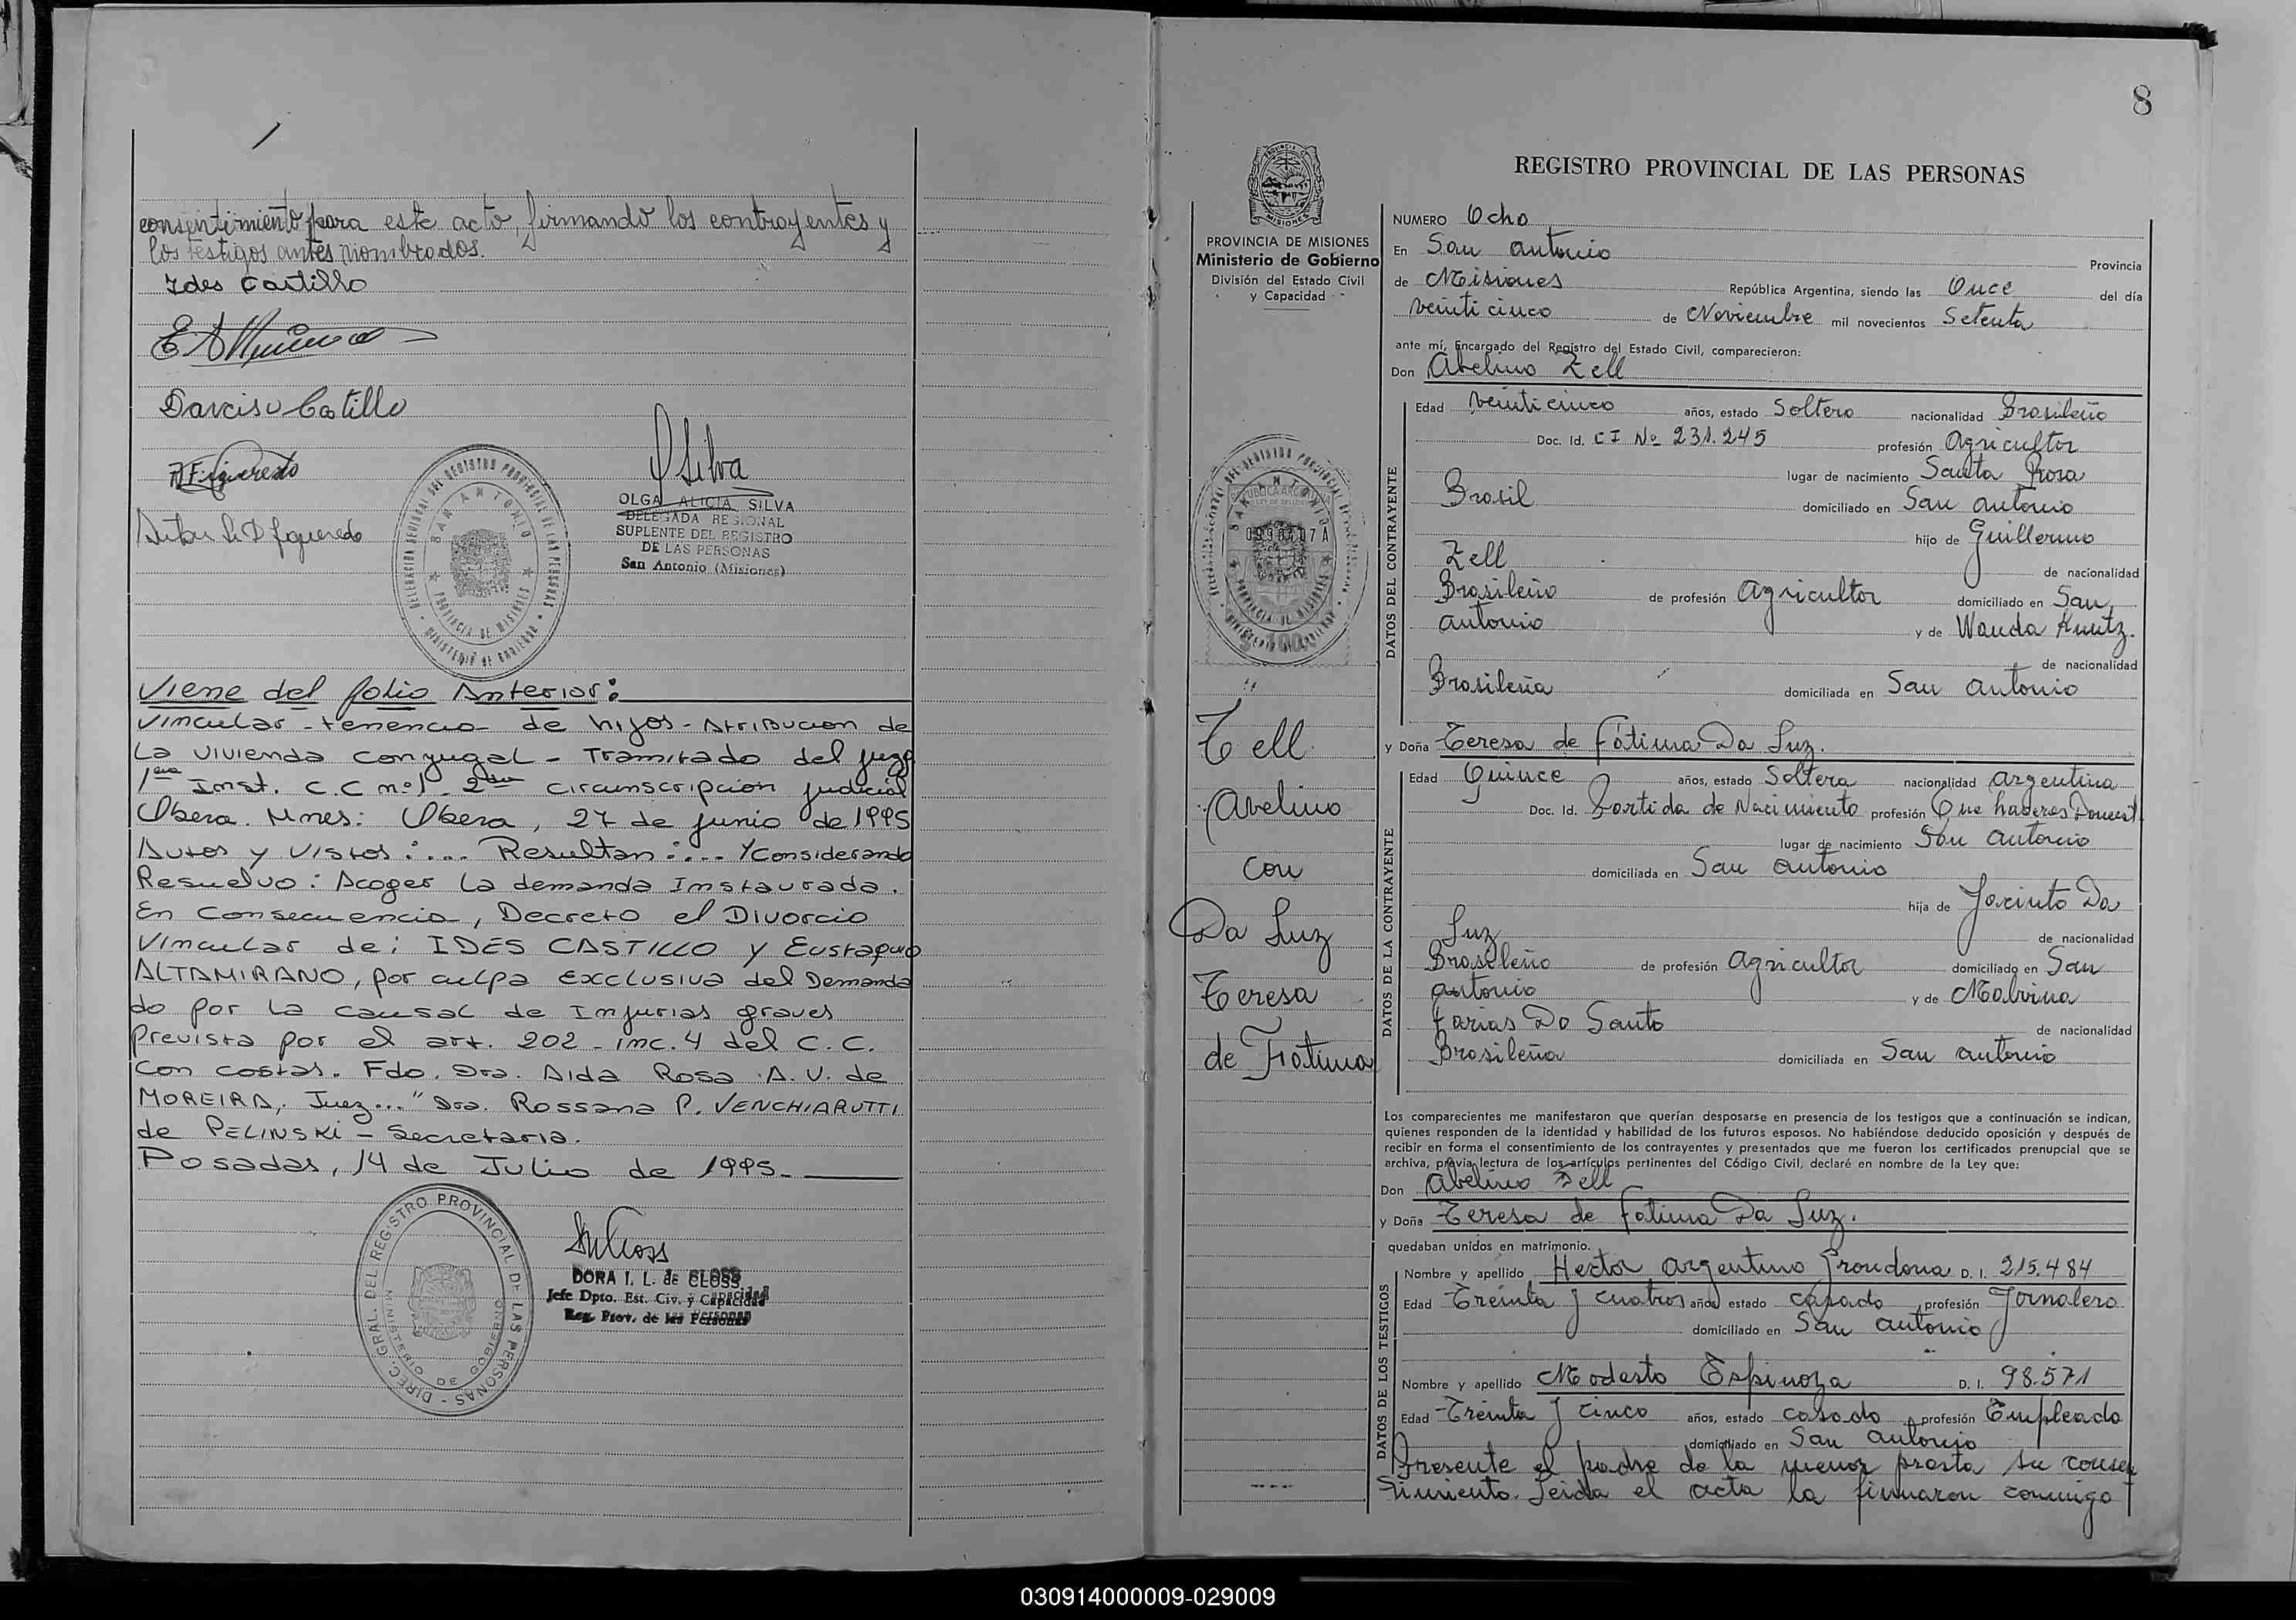 consentimiento para este acto, firmando los contrayentes y
los testigos antes nombrados.
Ides Castillo
Darciso Castillo
OSilva
OLGA ALICIA SILVA
DELEGADA REGIONAL
SUPLENTE DEL REGISTRO
DE LAS PERSONAS
San Antonio (Misiones)
DELEGACION REGIONAL DEL REGISTRO PROVINCIAL DE LAS PERSONAS
SAN ANTONIO
PROVINCIA DE MISIONES
MINISTERIO DE GOBIERNO
Viene del folio Anterior:
Vincular - tenencia de hijos - Atribucion de
La vivienda conyugal - Tramitado del Juzg
1era Inst. C.C nº1 - 2da circunscripcion judicial
Obera. Mnes: Obera, 27 de junio de 1995
Autos y Vistos:... Resultan:... Y Considerando
Resuelvo: Acoger la demanda Instaurada.
En Consecuencia, Decreto el Divorcio
Vincular de: IDES CASTILLO y Eustaquio
ALTAMIRANO, por culpa exclusiva del Demanda
do por la causal de Injurias graves
Prevista por el art. 202 - inc. 4 del C.C.
Con costas. Fdo. Dra. Aida Rosa A. V. de
MOREIRA, Juez..." Dra. Rossana P. VENCHIARUTTI
de PELINSKI - Secretaria.
Posadas, 14 de Julio de 1995.-
DIREC. GRAL. DEL REGISTRO PROVINCIAL DE LAS PERSONAS
MINISTERIO DE GOBIERNO
DORA I. L. de CLOSS
Jefe Dpto. Est. Civ. y Capacidad
Reg. Prov. de las Personas
8
PROVINCIA DE MISIONES
Ministerio de Gobierno
División del Estado Civil
y Capacidad
Tell
Avelino
con
Da Luz
Teresa
de Fatima
REGISTRO PROVINCIAL DE LAS PERSONAS
NUMERO Ocho
En San Antonio Provincia
de Misiones República Argentina, siendo las Once del día
veinticinco de Noviembre mil novecientos Setenta
ante mí, Encargado del Registro del Estado Civil, comparecieron:
Don Abelino Zell
DATOS DEL CONTRAYENTE
Edad veinticinco años, estado Soltero nacionalidad Brasileño
Doc. Id. CI Nº 231.245 profesión Agricultor
lugar de nacimiento Santa Rosa
Brasil domiciliado en San Antonio
hijo de Guillermo
Zell de nacionalidad
Brasileño de profesión Agricultor domiciliado en San
Antonio y de Wanda Kuntz.
de nacionalidad
Brasileña domiciliada en San Antonio
y Doña Teresa de Fátima Da Luz.
DATOS DE LA CONTRAYENTE
Edad Quince años, estado Soltera nacionalidad Argentina
Doc. Id. Partida de Nacimiento profesión Que haceres Domest.
lugar de nacimiento San Antonio
domiciliada en San Antonio
hija de Jacinto Da
Luz de nacionalidad
Brasileño de profesión Agricultor domiciliado en San
Antonio y de Malvina
Farias Do Santo de nacionalidad
Brasileña domiciliada en San Antonio
Los comparecientes me manifestaron que querían desposarse en presencia de los testigos que a continuación se indican,
quienes responden de la identidad y habilidad de los futuros esposos. No habiéndose deducido oposición y después de
recibir en forma el consentimiento de los contrayentes y presentados que me fueron los certificados prenupcial que se
archiva, previa lectura de los artículos pertinentes del Código Civil, declaré en nombre de la Ley que:
Don Abelino Zell
y Doña Teresa de Fatima Da Luz.
quedaban unidos en matrimonio.
DATOS DE LOS TESTIGOS
Nombre y apellido Hector Argentino Grondona D. I. 215.484
Edad Treinta y cuatros años estado casado profesión Jornalero
domiciliado en San Antonio
Nombre y apellido Modesto Espinoza D. I. 98.571
Edad Treinta y cinco años, estado casado profesión Empleado
domiciliado en San Antonio
Presente el padre de la menor presta su consen
timiento. Leida el acta la firmaron conmigo
030914000009-029009